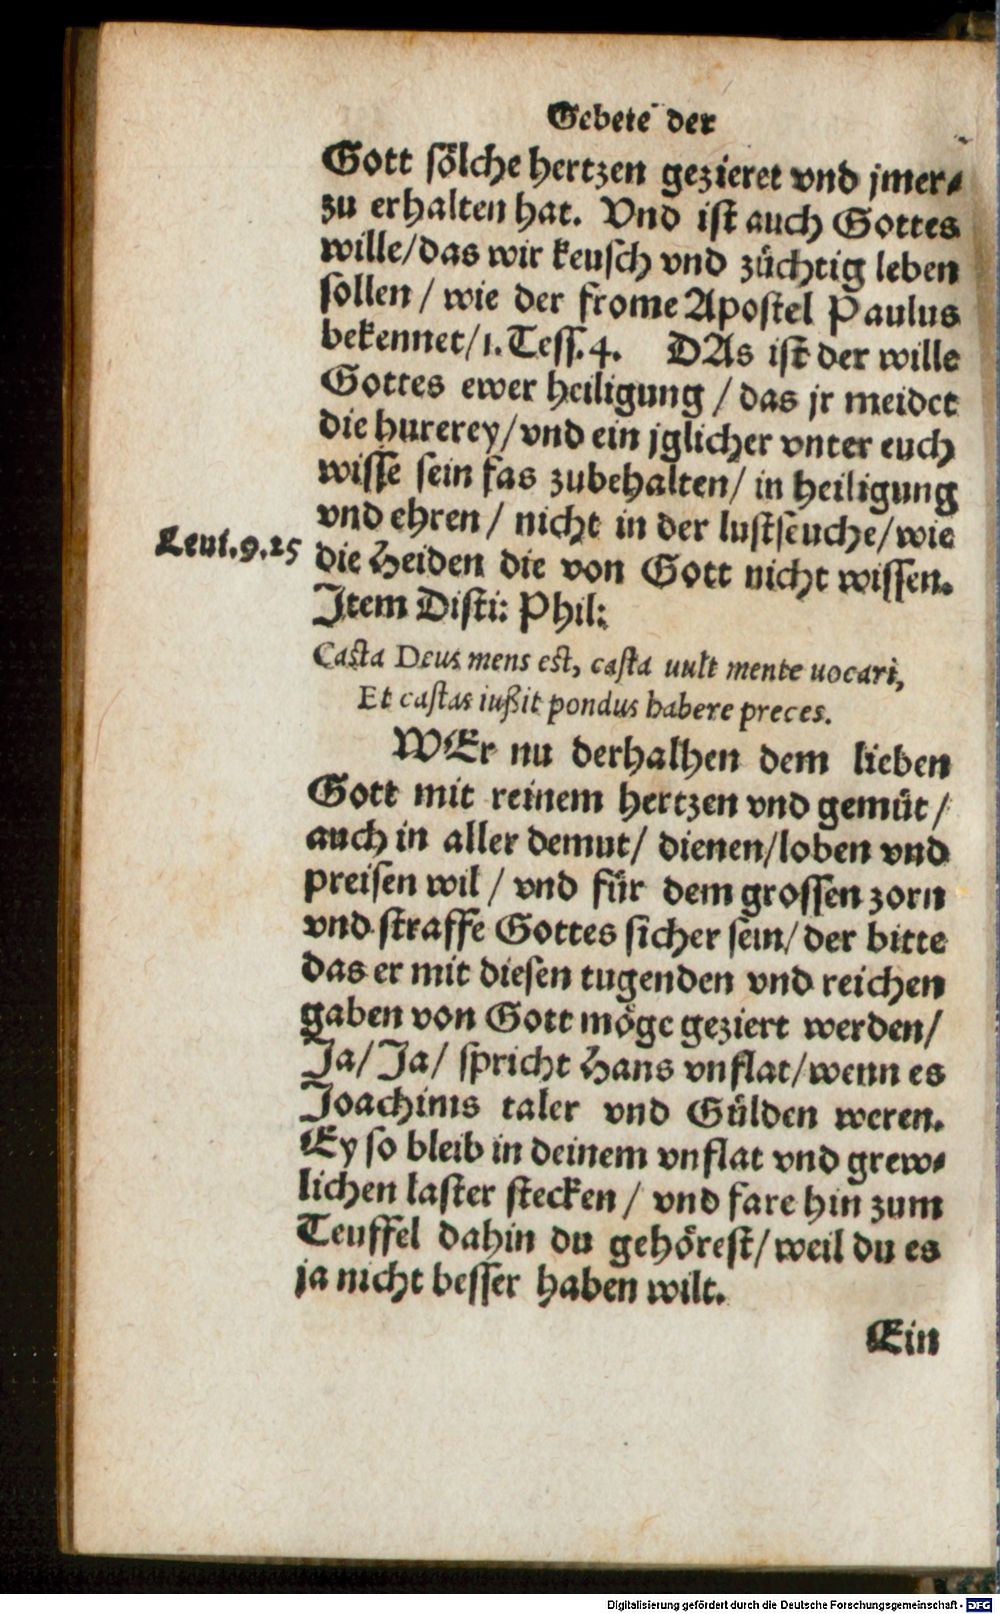 Gebete der
Gott sölche hertzen gezieret vnd jmer⸗
zu erhalten hat. Vnd ist auch Gottes
wille/das wir keusch vnd züchtig leben
sollen / wie der frome Apostel Paulus
bekennet/1. Tess. 4. DAs ist der wille
Gottes ewer heiligung / das jr meidet
die hurerey/vnd ein jglicher vnter euch
wisse sein fas zubehalten/ in heiligung
vnd ehren / nicht in der lustseuche/wie
Leui. 9. 25
die Heiden die von Gott nicht wissen.
Item Disti: Phil:
Casta Deus mens est, casta uult mente uocari,
Et castas iußit pondus habere preces.
WEr nu derhalhen dem lieben
Gott mit reinem hertzen vnd gemüt /
auch in aller demut/ dienen/loben vnd
preisen wil / vnd für dem grossen zorn
vnd straffe Gottes sicher sein/ der bitte
das er mit diesen tugenden vnd reichen
gaben von Gott möge geziert werden/
Ja/ Ja/ spricht Hans vnflat/wenn es
Joachims taler vnd Gülden weren.
Ey so bleib in deinem vnflat vnd grew⸗
lichen laster stecken / vnd fare hin zum
Teuffel dahin du gehörest/ weil du es
ja nicht besser haben wilt.
Ein
Digitalisierung gefördert durch die Deutsche Forschungsgemeinschaft - DFG